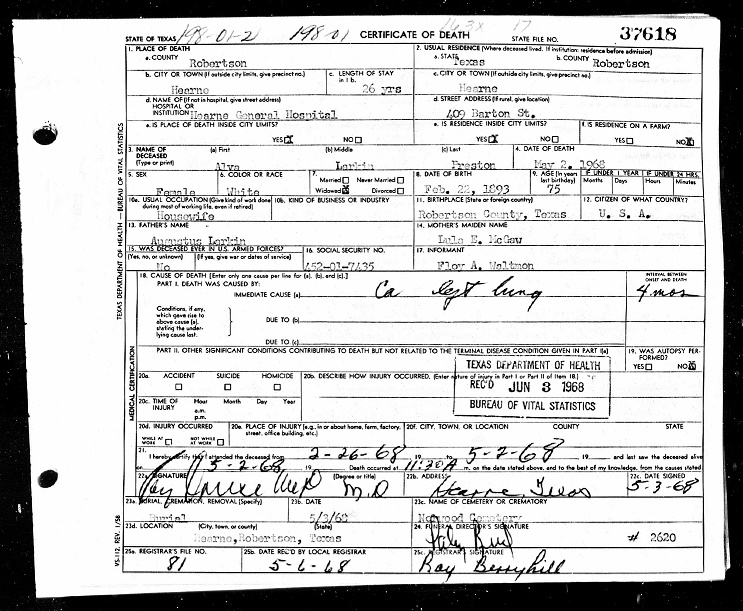 198-01-2 198-01 163x 17
STATE OF TEXAS CERTIFICATE OF DEATH STATE FILE NO. 37618
1. PLACE OF DEATH 2. USUAL RESIDENCE (Where deceased lived. If institution: residence before admission)
a. COUNTY a. STATE b. COUNTY
Robertson Texas Robertson
b. CITY OR TOWN (If outside city limits, give precinct no.) c. LENGTH OF STAY in 1 b. c. CITY OR TOWN (If outside city limits, give precinct no.)
Hearne 26 yrs Hearne
d. NAME OF (If not in hospital, give street address) d. STREET ADDRESS (If rural, give location)
HOSPITAL OR
INSTITUTION Hearne General Hospital 409 Barton St.
e. IS PLACE OF DEATH INSIDE CITY LIMITS? e. IS RESIDENCE INSIDE CITY LIMITS? f. IS RESIDENCE ON A FARM?
YES X NO YES X NO YES NO X
3. NAME OF DECEASED (Type or print) (a) First (b) Middle (c) Last 4. DATE OF DEATH
Alva Larkin Preston May 2, 1968
5. SEX 6. COLOR OR RACE 7. Married Never Married 8. DATE OF BIRTH 9. AGE (In years last birthday) IF UNDER 1 YEAR IF UNDER 24 HRS.
Months Days Hours Minutes
Female White Widowed X Divorced Feb. 22, 1893 75
10a. USUAL OCCUPATION (Give kind of work done during most of working life, even if retired) 10b. KIND OF BUSINESS OR INDUSTRY 11. BIRTHPLACE (State or foreign country) 12. CITIZEN OF WHAT COUNTRY?
Housewife Robertson County, Texas U. S. A.
13. FATHER'S NAME 14. MOTHER'S MAIDEN NAME
Augustus Larkin Lula E. McGaw
15. WAS DECEASED EVER IN U.S. ARMED FORCES? 16. SOCIAL SECURITY NO. 17. INFORMANT
(Yes, no, or unknown) (If yes, give war or dates of service)
No 452-01-7435 Floy A. Waltmon
18. CAUSE OF DEATH [Enter only one cause per line for (a), (b), and (c).] INTERVAL BETWEEN ONSET AND DEATH
PART I. DEATH WAS CAUSED BY:
IMMEDIATE CAUSE (a) Ca left lung 4 mos
Conditions, if any, which gave rise to above cause (a), stating the underlying cause last.
DUE TO (b)
DUE TO (c)
PART II. OTHER SIGNIFICANT CONDITIONS CONTRIBUTING TO DEATH BUT NOT RELATED TO THE TERMINAL DISEASE CONDITION GIVEN IN PART I(a) 19. WAS AUTOPSY PERFORMED?
YES NO X
TEXAS DEPARTMENT OF HEALTH
REC'D JUN 3 1968
BUREAU OF VITAL STATISTICS
20a. ACCIDENT SUICIDE HOMICIDE 20b. DESCRIBE HOW INJURY OCCURRED. (Enter nature of injury in Part I or Part II of item 18.)
20c. TIME OF INJURY Hour Month Day Year
a.m.
p.m.
20d. INJURY OCCURRED 20e. PLACE OF INJURY (e.g., in or about home, farm, factory, street, office building, etc.) 20f. CITY, TOWN, OR LOCATION COUNTY STATE
WHILE AT WORK NOT WHILE AT WORK
21. I hereby certify that I attended the deceased from 2-26-68 19 to 5-2-68 19 and last saw the deceased alive
on 5-2-68 19 Death occurred at 11:30 A m. on the date stated above, and to the best of my knowledge, from the causes stated.
22a. SIGNATURE (Degree or title) 22b. ADDRESS 22c. DATE SIGNED
M.D Hearne Texas 5-3-68
23a. BURIAL, CREMATION, REMOVAL (Specify) 23b. DATE 23c. NAME OF CEMETERY OR CREMATORY
Burial 5/3/68 Norwood Cemetery
23d. LOCATION (City, town, or county) (State) 24. FUNERAL DIRECTOR'S SIGNATURE
Hearne, Robertson, Texas # 2620
25a. REGISTRAR'S FILE NO. 25b. DATE REC'D BY LOCAL REGISTRAR 25c. REGISTRAR'S SIGNATURE
81 5-6-68 Ray Berryhill
TEXAS DEPARTMENT OF HEALTH — BUREAU OF VITAL STATISTICS
MEDICAL CERTIFICATION
VS-112, REV. 1/58